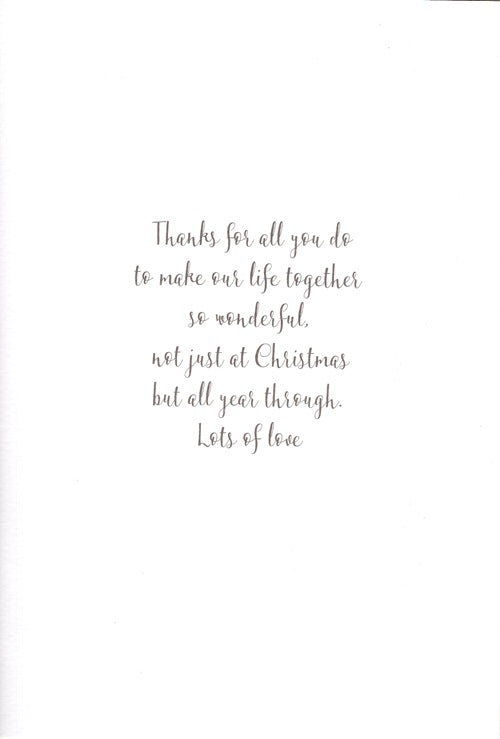 Thanks for all you do
to make our life together
so wonderful,
not just at Christmas
but all year through.
Lots of love